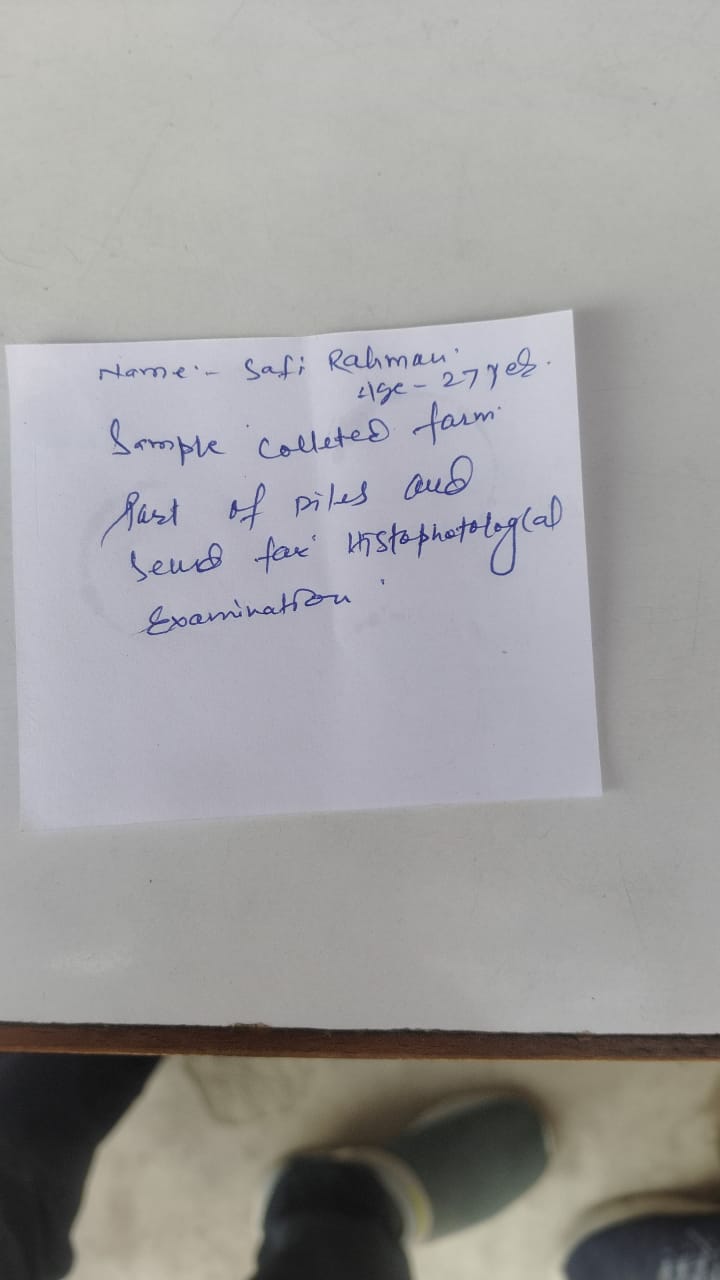 Name:- Safi Rahman.
Age - 27 yrs.
Sample colleted farm
Part of piles and
Send for Histophotological
Examination.